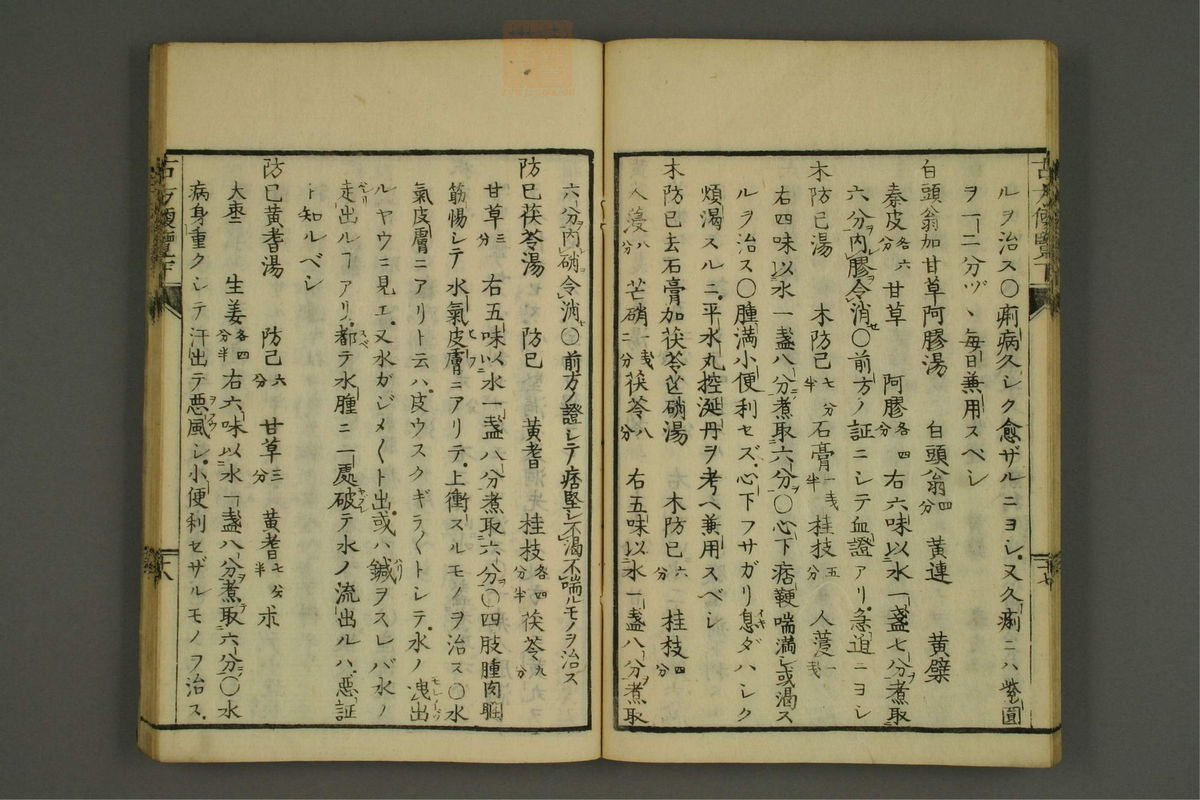 ルヲ治ス〇痢病久シク愈ザルニヨシ又久痢ニハ紫圓
ヲ一二分ヅヽ毎日兼用スベシ
白頭翁加甘草阿膠湯 白頭翁四分 黄連 黄檗
秦皮各六分 甘草 阿膠各四分 右六味以水一盞七分煮取
六分内膠令消〇前方ノ証ニシテ血證アリ急迫ニヨシ
木防已湯 木防已七分半 石膏一戔半 桂枝五分 人薓一戔
右四味以水一盞八分煮取六分〇心下痞鞕喘満シ或渇ス
ルヲ治ス〇腫満小便利セズ心下フサガリ息ダハシク
煩渇スルニ平水丸控涎丹ヲ考ヘ兼用スベシ
木防已去石膏加茯苓芒硝湯 木防已六分 桂枝四分
人薓八分 芒硝一戔二分 茯苓八分 右五味以水一盞八分煮取
六分内硝令消〇前方ノ證シテ痞堅シ不渇不喘ルモノヲ治ス
防已茯苓湯 防已 黄耆 桂枝各四分半 茯苓九分
甘草三分 右五味以水一盞八分煮取六分〇四肢腫肉瞤
筋惕シテ水氣皮膚ニアリテ上衝スルモノヲ治ス〇水
氣皮膚ニアリト云ハ皮ウスクギラ〱トシテ水ノ洩出
ルヤウニ見エ又水ガジメ〱ト出或ハ鍼ヲスレバ水ノ
走出ルヿアリ都テ水腫ニ一處破テ水ノ流出ルハ悪証
ト知ルベシ
防已黄耆湯 防已六分 甘草三分 黄耆七分半 朮
大棗 生姜各四分半 右六味以水一盞八分煮取六分〇水
病身重クシテ汗出テ悪風シ小便利セザルモノヲ治ス
古方便覽下
十七
古方便覽下
十八